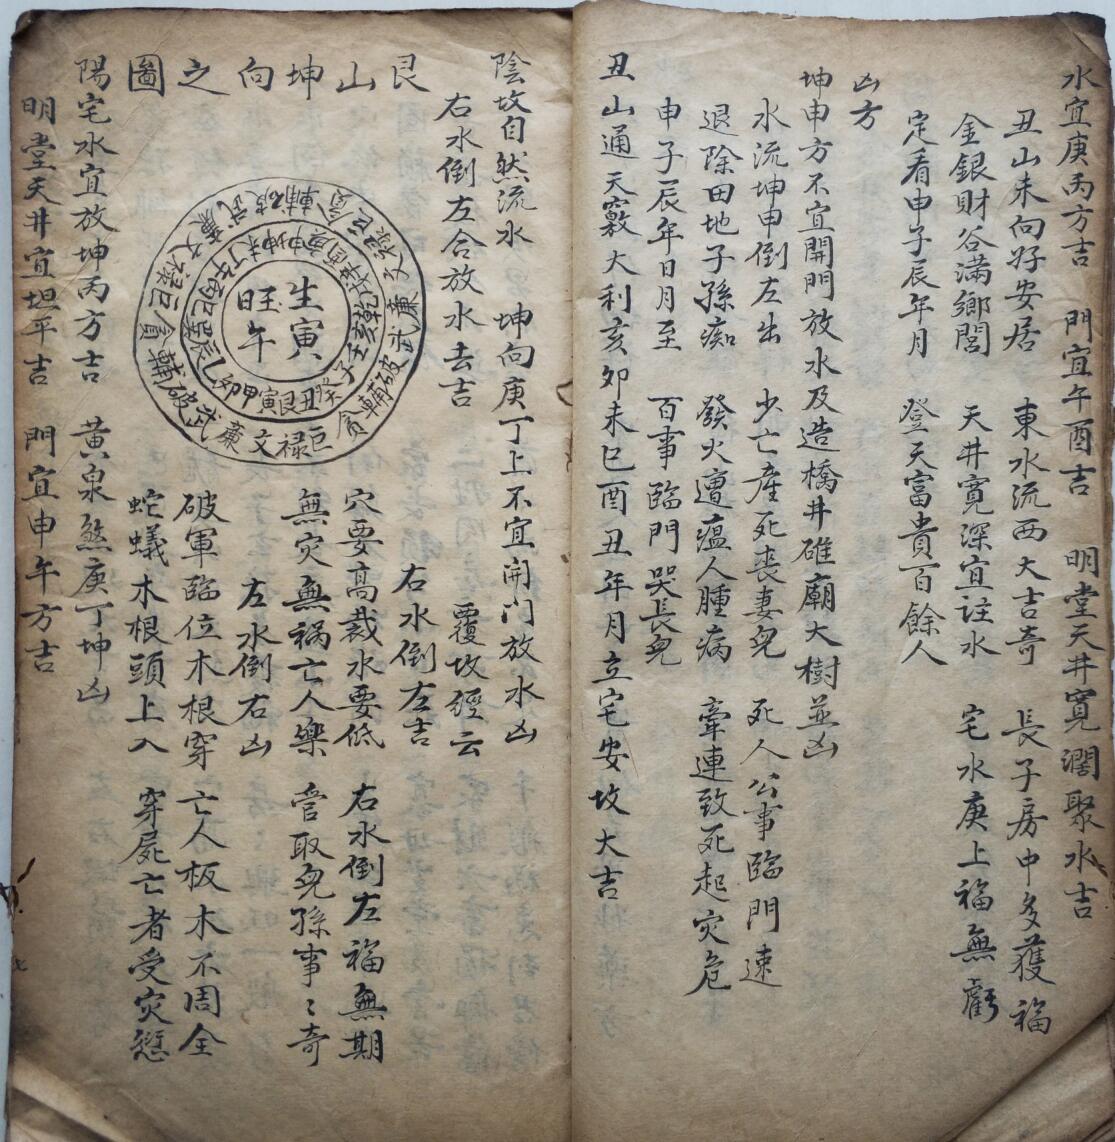 水宜庚丙方吉　門宜午酉吉　明堂天井寬濶聚水吉
丑山未向好安居　東水流西大吉奇　長子房中多獲福
金銀財谷滿鄉閭　天井寬深宜注水　宅水庚上福無虧
定看申子辰年月　登天富貴百餘人
凶方
坤申方不宜開門放水及造橋井碓廟大樹並凶
水流坤申倒左出　少亡産死喪妻兒　死人公事臨門速
退除田地子孫痴　發火遭瘟人腫病　牽連致死起灾危
申子辰年日月至　百事臨門哭長兒
丑山通天竅大利亥卯未巳酉丑年月立宅安坟大吉
陰坟自然流水　坤向庚丁上不宜開门放水凶
右水倒左合放水去吉　覆坟經云
艮山坤向之圖
右水倒左吉
穴要高裁水要低　右水倒左福無期
無灾無禍亡人樂　管取兒孫事〻奇
左水倒右凶
破軍臨位木根穿　亡人板木不周全
蛇蟻木根頭上入　穿屍亡者受灾愆
生寅
旺午
子癸丑艮寅甲卯乙辰巽巳丙午丁未坤申庚酉辛戌乾亥壬
貪巨祿文廉武破輔貪巨祿文廉武破輔貪巨祿文廉武破輔
陽宅水宜放坤丙方吉　黄泉煞庚丁坤凶
明堂天井宜坦平吉　門宜申午方吉